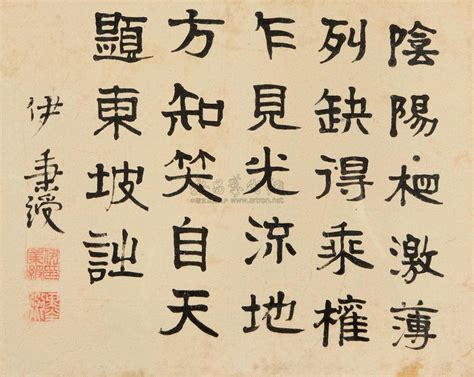 陰陽激薄
列缺得乘權
乍見光流地
方知笑自天
題東坡詩
伊秉綬
www.artron.net